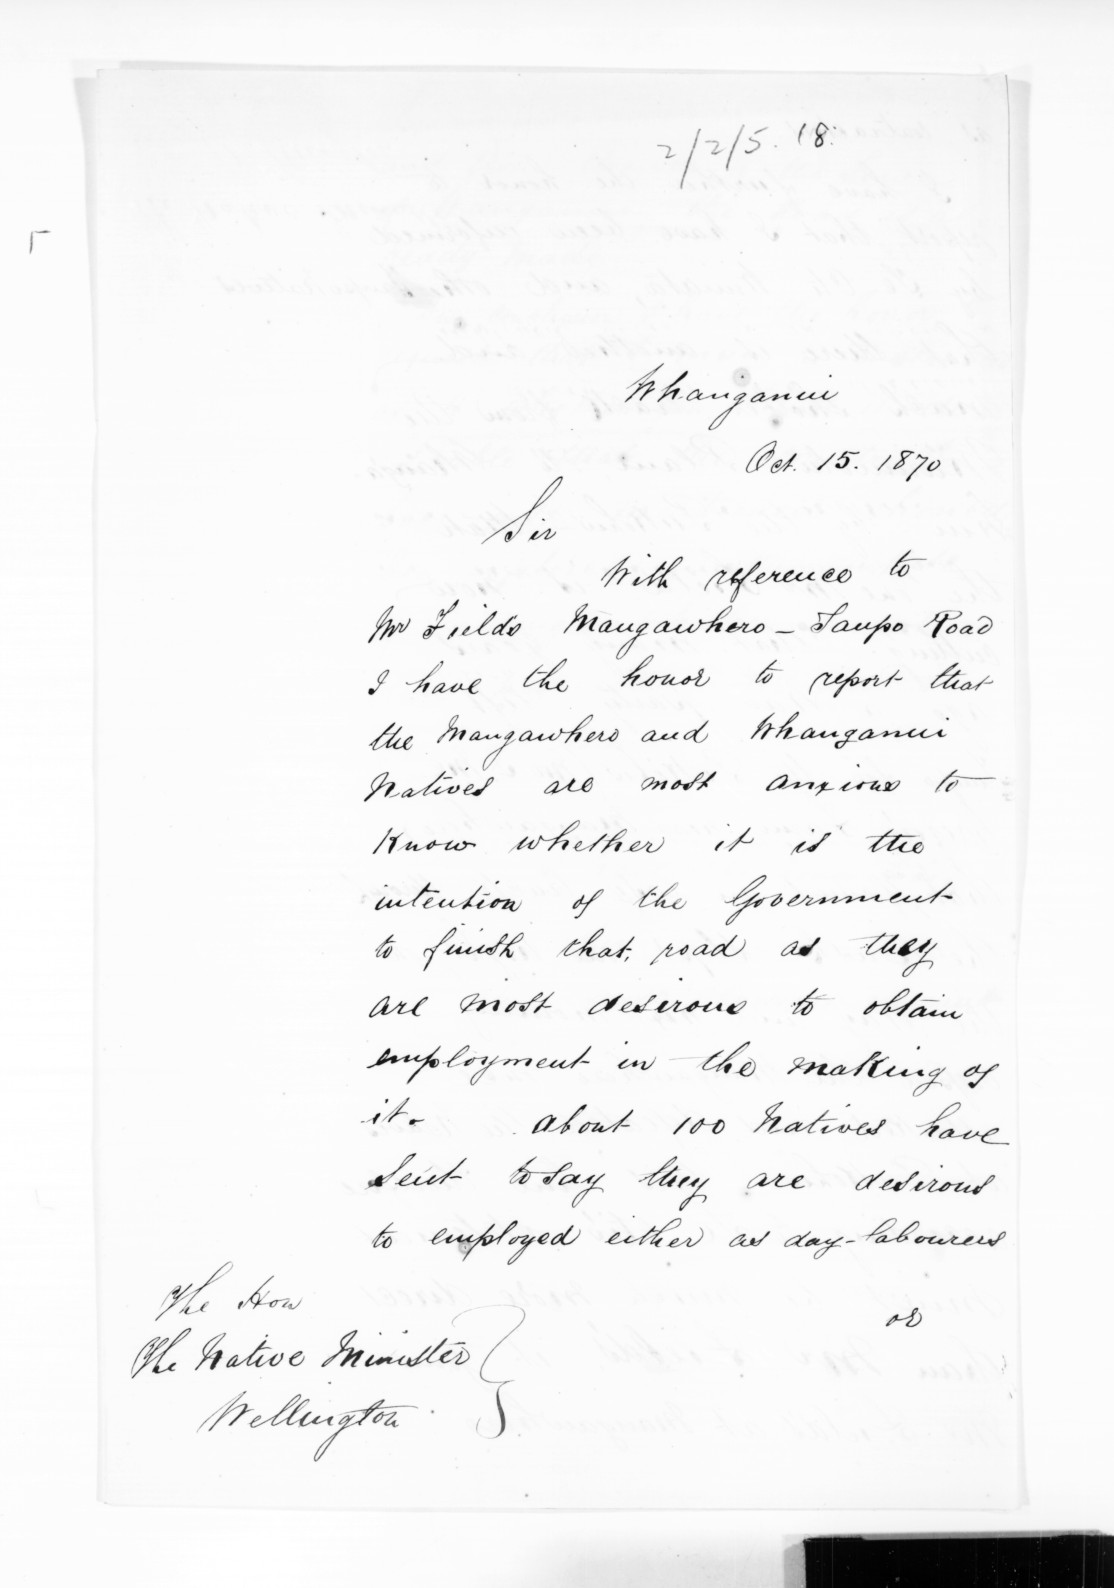 2/2/5. 18.
Whanganui
Oct. 15. 1870
Sir
With reference to
Mr Field's Mangawhero - Taupo Road
I have the honor to report that
the Mangawhero and Whanganui
Natives are most anxious to
know whether it is the
intention of the Government
to finish that, road as they
are most desirous to obtain
employment in the making of
it. About 100 Natives have
sent to say they are desirous
to employed either as day-labourers
or
The Hon
The Native Minister
Wellington